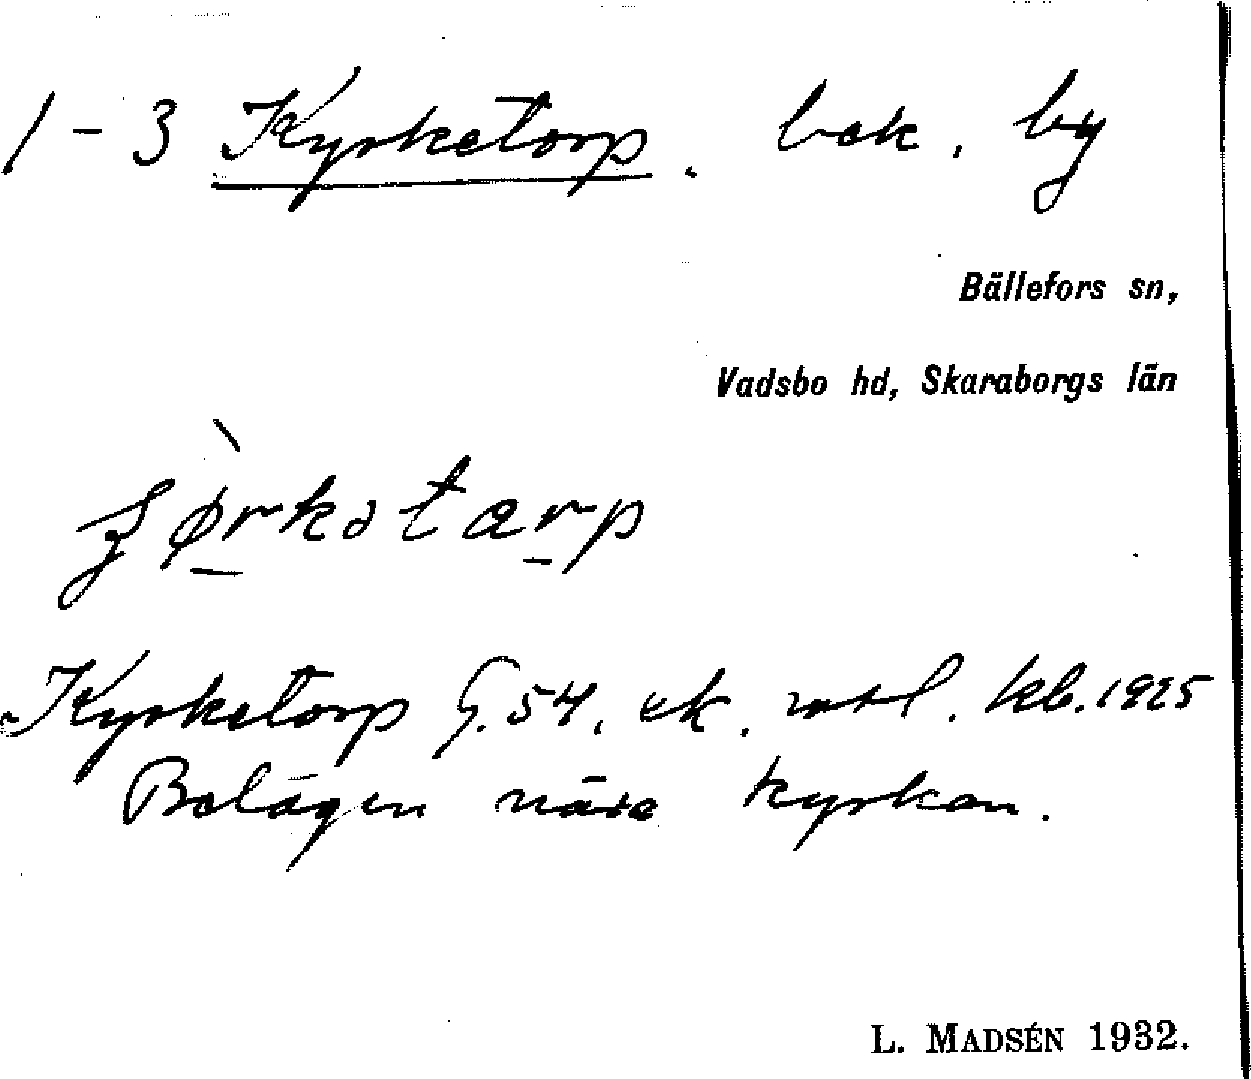 1-3 Kyrketorp. bek. by
Bällefors sn,
Vadsbo hd, Skaraborgs län
Kyrketorp G. 54, ek. mtl. kb. 1925
Belägen nära kyrkan.
L. MADSÉN 1932.